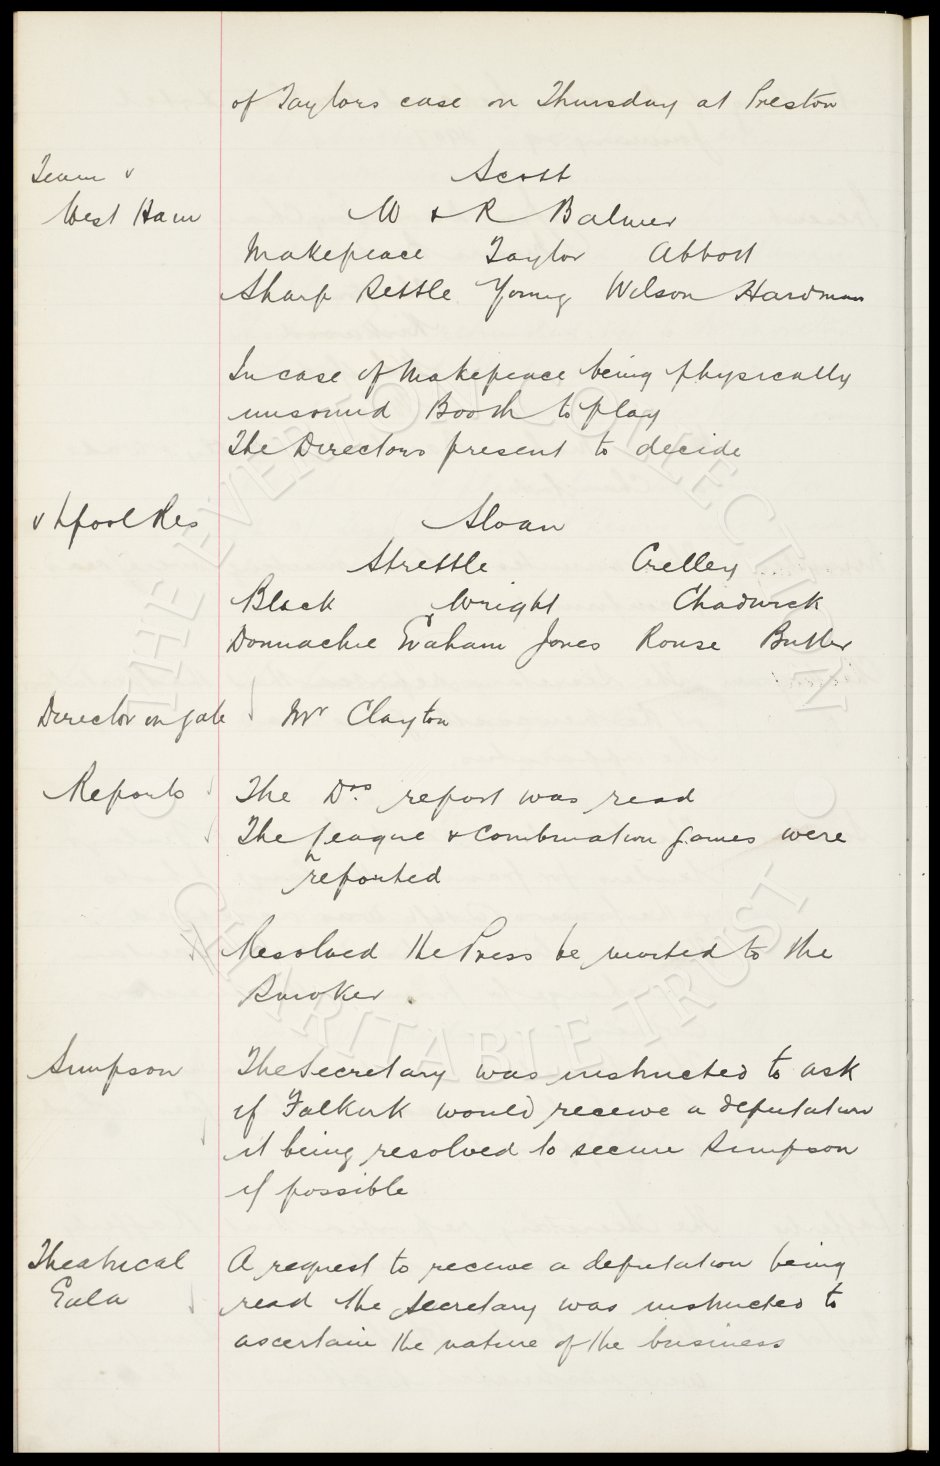 of Taylors case on Thursday at Preston
Team v
West Ham
Scott
W & R Balmer
Makepeace Taylor Abbott
Sharp Settle Young Wilson Hardman
In case of Makepeace being physically
unsound Booth to play
The Directors present to decide
v Lpool Res
Sloan
Strettle Crelley
Black Wright Chadwick
Donnachie Graham Jones Rouse Butler
Director on gate
Mr Clayton
Reports
The Drs report was read
The League & Combination games were
reported
Resolved the Press be invited to the
Smoker
Simpson
The Secretary was instructed to ask
if Falkirk would receive a deputation
it being resolved to secure Simpson
if possible
Theatrical
Gala
A request to receive a deputation being
read the Secretary was instructed to
ascertain the nature of the business
THE EVERTON COLLECTION
CHARITABLE TRUST